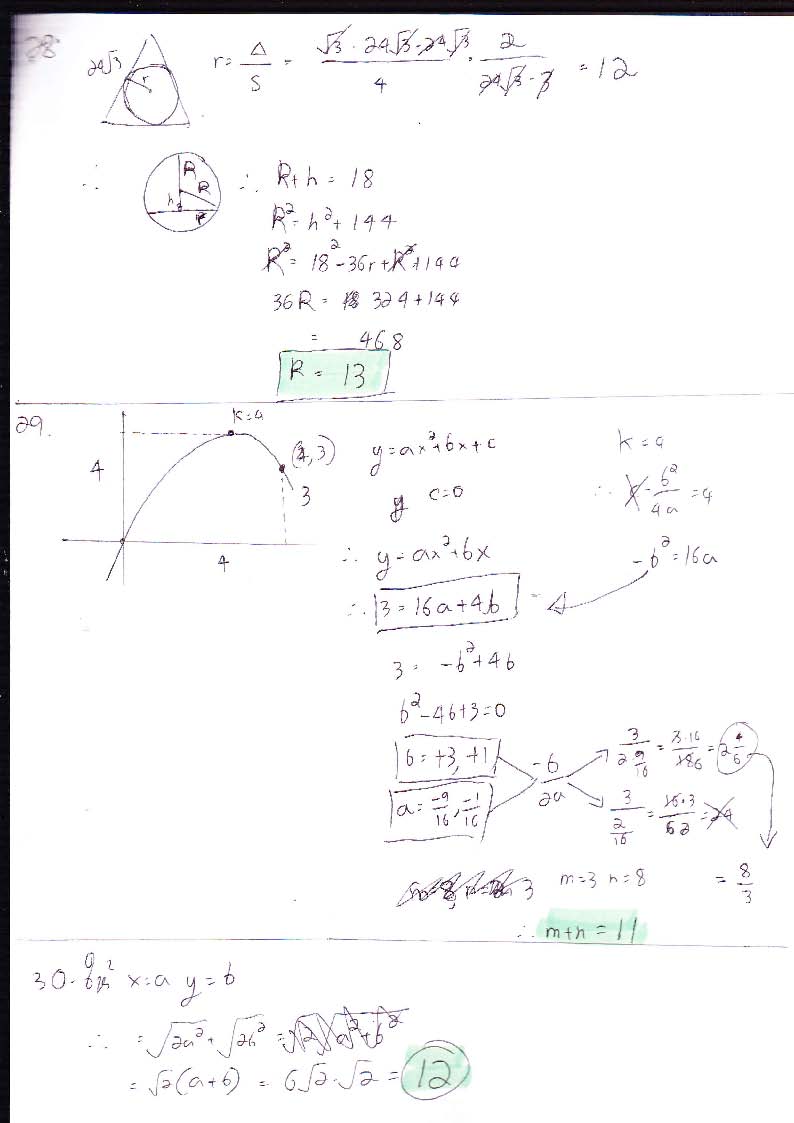 28
24√3 r r = Δ/S = √3 · 24√3 · 24√3 / 4 · 2 / 24√3 · 3 = 12
∴ R R h r ∴ R + h = 18
R² = h² + 144
R² = 18² - 36r + R² + 144
36R = 324 + 144
= 468
R = 13
29.
k=4
4
(4,3)
3
4
y = ax² + bx + c
y c=0
∴ y = ax² + bx
∴ 3 = 16a + 4b
k = 4
∴ - b²/4a = 4
-b² = 16a
3 = -b² + 4b
b² - 4b + 3 = 0
b = +3, +1
a = -9/16, -1/16
-b/2a
3 / 2 9/16 = 3·16/186 = 2 4/6
3 / 2/16 = 16·3/62 = 24
= 8/3
3 m=3 n=8
∴ m+n = 11
30. x=a y=b
∴ = √2a² + √2b² = √2 √a²+b²
= √2(a+b) = 6√2·√2 = 12